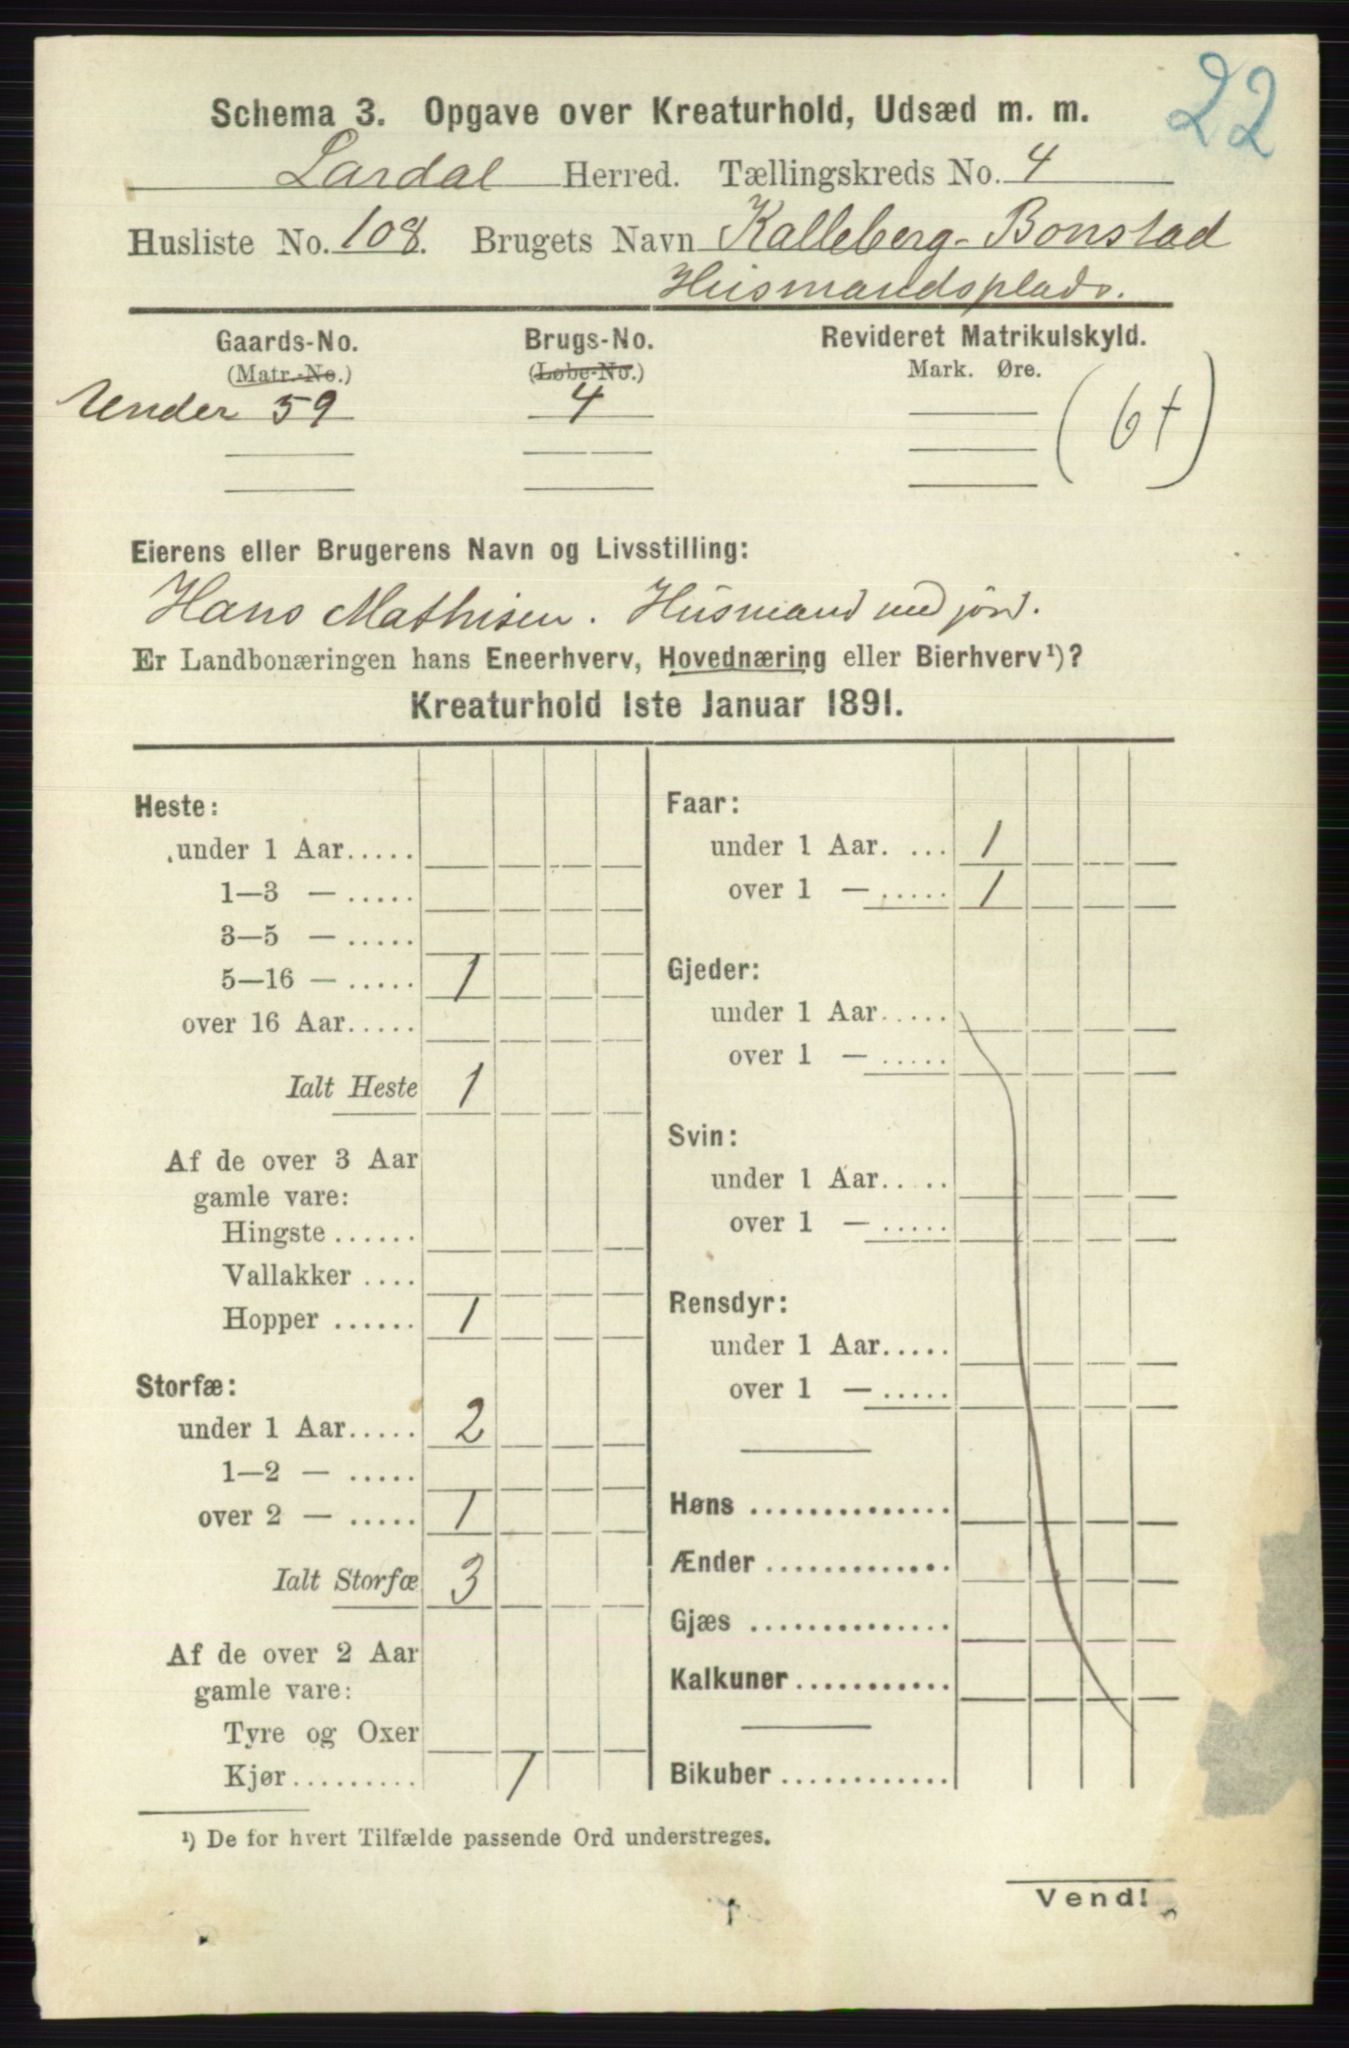 22
Schema 3. Opgave over Kreaturhold, Udsæd m. m.
Lardal Herred. Tællingskreds No. 4
Husliste No. 108. Brugets Navn Kalleberg-Bonstad
Husmandsplads.
Gaards-No. Brugs-No. Revideret Matrikulskyld.
(Matr.-No.) (Løbe-No.) Mark. Øre.
Under 59 4 (6+)
Eierens eller Brugerens Navn og Livsstilling:
Hans Mathisen. Husmand med jord.
Er Landbonæringen hans Eneerhverv, Hovednæring eller Bierhverv¹)?
Kreaturhold 1ste Januar 1891.
Heste:
under 1 Aar.....
1—3 — .....
3—5 — .....
5—16 — ..... 1
over 16 Aar.....
Ialt Heste 1
Af de over 3 Aar
gamle vare:
Hingste ......
Vallakker ....
Hopper ...... 1
Storfæ:
under 1 Aar..... 2
1—2 — .....
over 2 — ..... 1
Ialt Storfæ 3
Af de over 2 Aar
gamle vare:
Tyre og Oxer
Kjør......... 1
Faar:
under 1 Aar. ... 1
over 1 — ..... 1
Gjeder:
under 1 Aar.....
over 1 — .....
Svin:
under 1 Aar.....
over 1 — .....
Rensdyr:
under 1 Aar.....
over 1 — .....
Høns ..............
Ænder .............
Gjæs ..............
Kalkuner ...........
Bikuber .............
¹) De for hvert Tilfælde passende Ord understreges.
Vend!